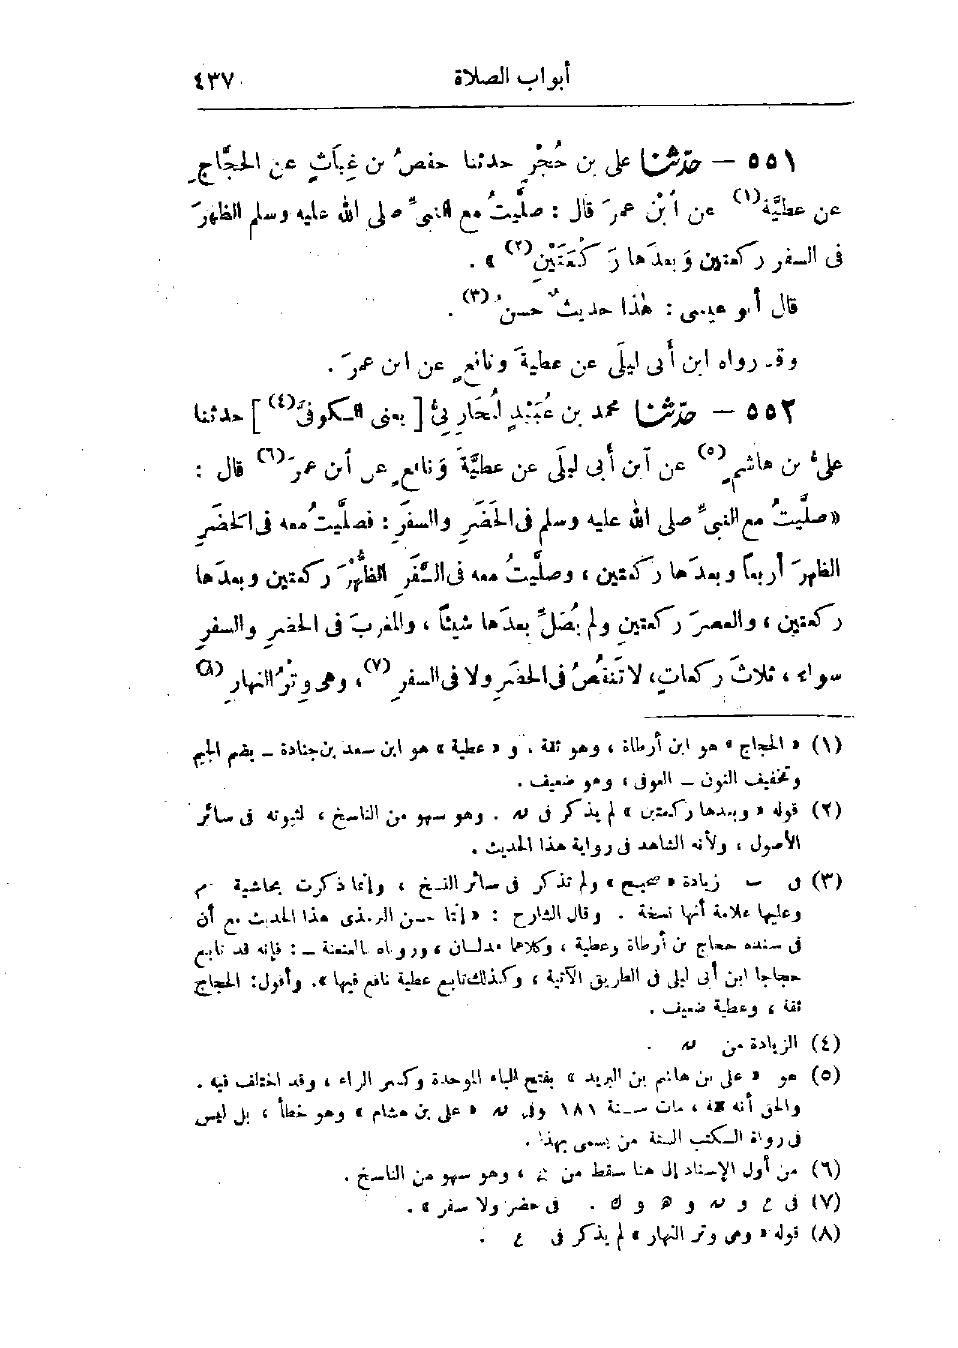 أبواب الصلاة ٤٣٧
٥٥١ – حَدَّثَنَا علي بن حُجْرٍ حدثنا حفصُ بن غِيَاثٍ عن الحجَّاجِ
عن عطيَّةَ (١) عن ابْنِ عمرَ قال : صلَّيتُ مع النبيِّ صلى الله عليه وسلم الظهرَ
فى السفر ركعتين وَبعدَها رَكْعَتَيْنِ (٢) » .
قال أبو عيسى : هٰذا حديثٌ حسنٌ (٣) .
وقد رواه ابن أبى ليلَى عن عطيةَ ونافعٍ عن ابن عمرَ .
٥٥٢ – حَدَّثَنَا محمد بن عُبَيْدٍ الْمُحَارِبِيُّ [ يعنى الكوفىَّ (٤) ] حدثنا
علىُّ بن هاشمٍ (٥) عن ابن أبى ليلَى عن عطيَّةَ وَنافعٍ عن ابن عمرَ (٦) قال :
« صلَّيتُ مع النبىِّ صلى الله عليه وسلم فى الحَضَرِ والسفَرِ : فصلَّيتُ معه فى الحَضَرِ
الظهرَ أربعاً وبعدَها ركعتين ، وصلَّيتُ معه فى السَّفَرِ الظُّهْرَ ركعتين وبعدَها
ركعتين ، والعصرَ ركعتينِ ولم يُصَلِّ بعدَها شيئاً ، والمغربَ فى الحضرِ والسفرِ
سواء ، ثلاثَ ركعاتٍ ، لا تَنقُصُ فى الحَضَرِ ولا فى السفرِ (٧) ، وهى وِتْرُ النهارِ (٨)
(١) « الحجاج » هو ابن أرطاة ، وهو ثقة . و « عطية » هو ابن سعد بن جنادة – بضم الجيم
وتخفيف النون – العوفى ، وهو ضعيف .
(٢) قوله « وبعدها ركعتين » لم يذكر فى ﻪ . وهو سهو من الناسخ ، لثبوته فى سائر
الأصول ، ولأنه الشاهد فى رواية هذا الحديث .
(٣) فى ب زيادة « صحيح » ولم تذكر فى سائر النسخ ، وإنما ذكرت بحاشية م
وعليها علامة أنها نسخة . وقال الشارح : « إنما حسن الترمذى هذا الحديث مع أن
فى سنده حجاج بن أرطاة وعطية ، وكلاهما مدلسان ، وروياه بالعنعنة – : فإنه قد تابع
حجاجا ابن أبى ليلى فى الطريق الآتية ، وكذلك تابع عطية نافع فيها » . وأقول : الحجاج
ثقة ، وعطية ضعيف .
(٤) الزيادة من .
(٥) هو « على بن هاشم بن البريد » بفتح الباء الموحدة وكسر الراء ، وقد اختلف فيه .
والحق أنه ثقة ، مات سنة ١٨١ وفى « على بن هشام » وهو خطأ ، بل ليس
فى رواة الكتب الستة من يسمى بهذا .
(٦) من أول الإسناد إلى هنا سقط من ع ، وهو سهو من الناسخ .
(٧) فى ع و و ه و ك . فى حضر ولا سفر » .
(٨) قوله « وهى وتر النهار » لم يذكر فى ع .